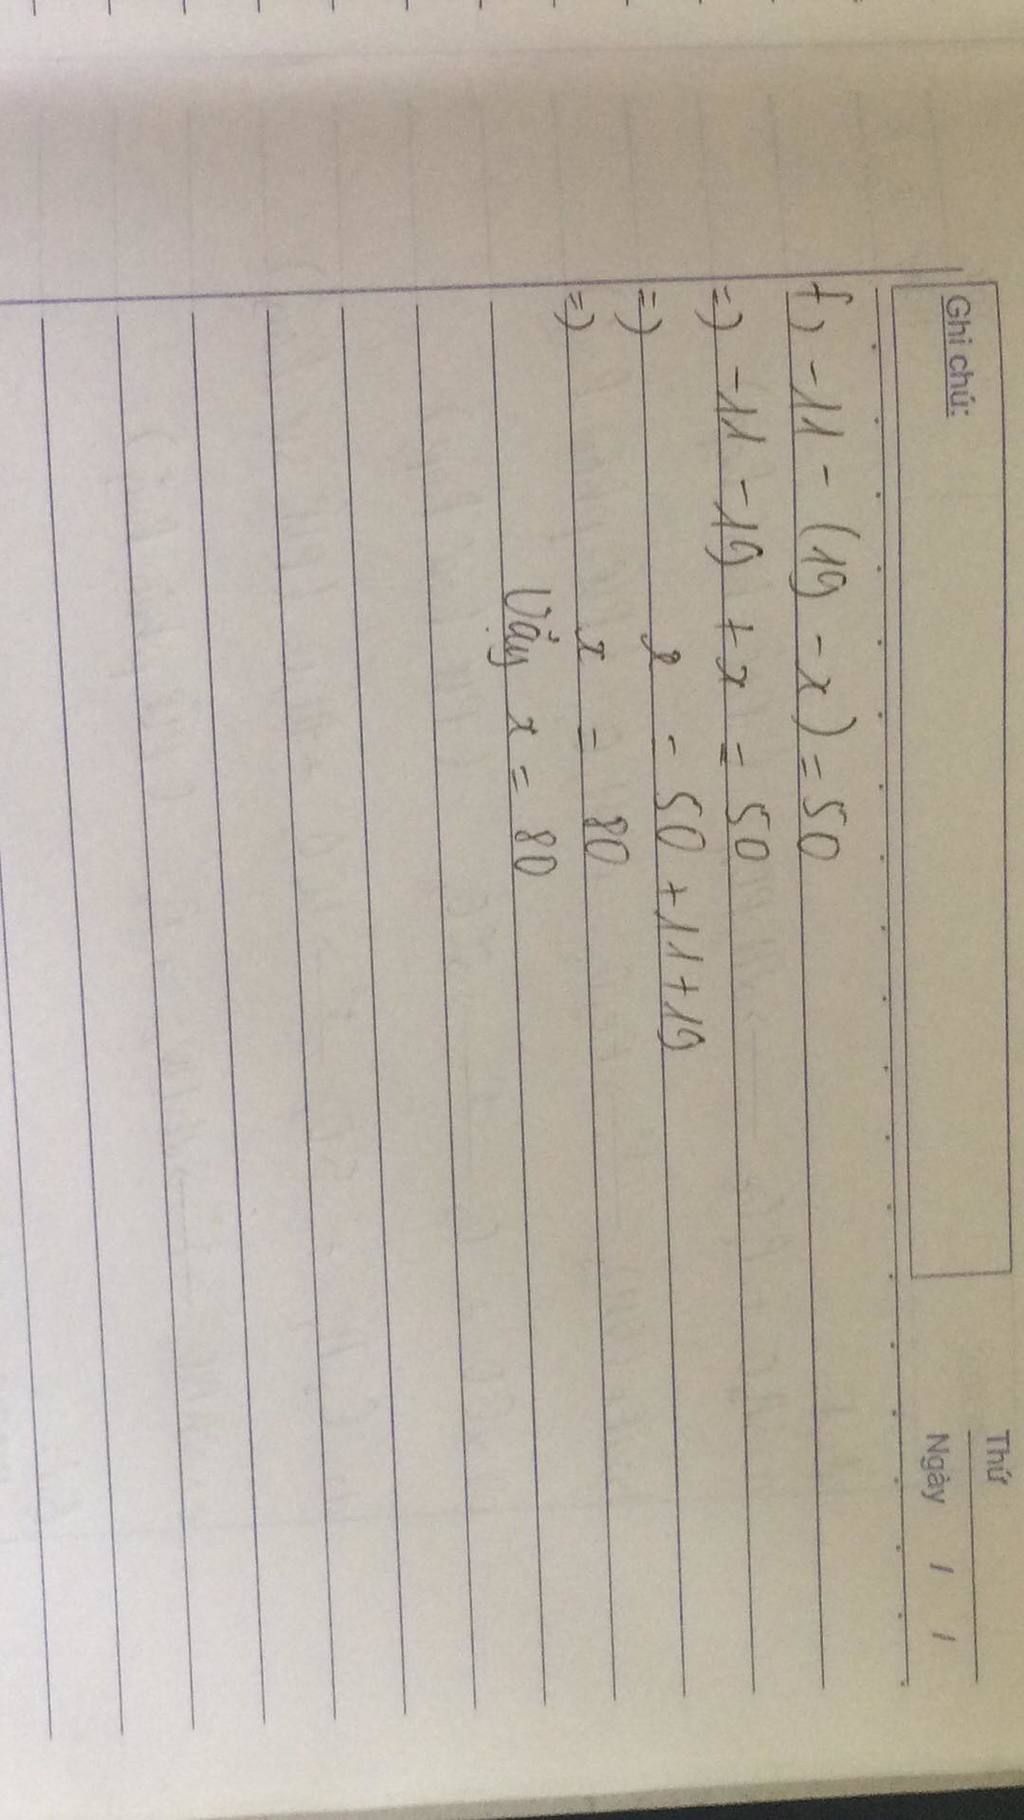 Thứ
Ghi chú:
Ngày / /
f, -11 - (19 - x) = 50
=) -11 - 19 + x = 50
=) x = 50 + 11 + 19
=) x = 80
Vậy x = 80